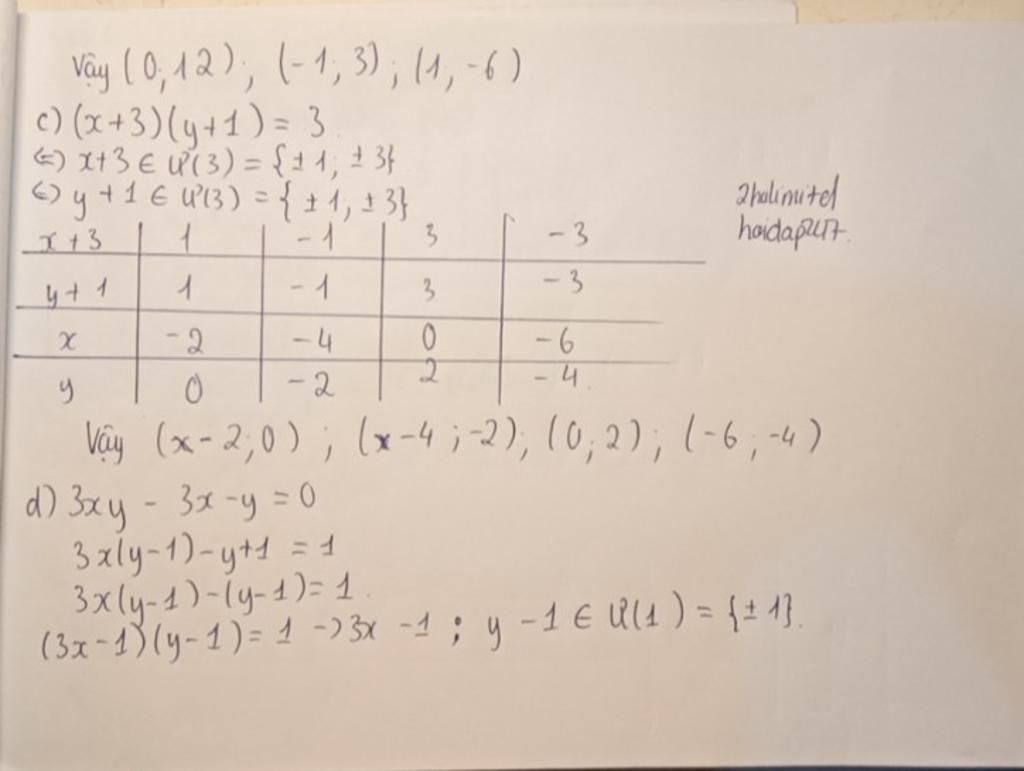 Vậy (0;12); (-1;3); (1;-6)
c) (x+3)(y+1) = 3
(=) x+3 ∈ Ư(3) = {±1; ±3}
(=) y+1 ∈ Ư(3) = {±1; ±3}
x+3 1 -1 3 -3
y+1 1 -1 3 -3
x -2 -4 0 -6
y 0 -2 2 -4
Vậy (x-2;0); (x-4;-2); (0;2); (-6;-4)
d) 3xy - 3x - y = 0
3x(y-1) - y+1 = 1
3x(y-1) - (y-1) = 1.
(3x-1)(y-1) = 1 -> 3x -1 ; y -1 ∈ Ư(1) = {±1}.